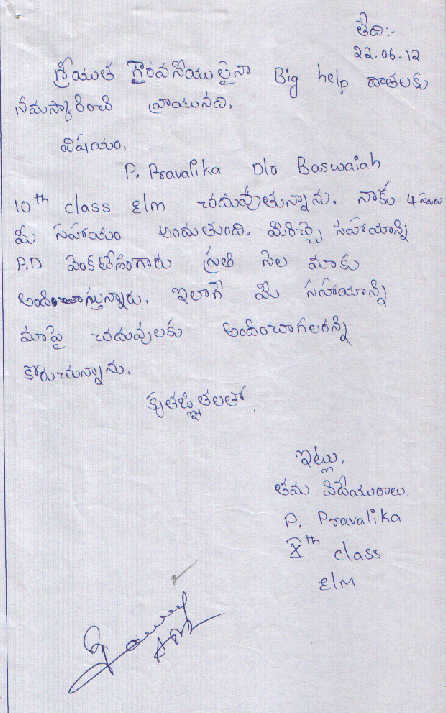 తేది:-
22.06.12
శ్రీయుత గౌరవనీయులైన Big help దాతలకు
నమస్కరించి వ్రాయునది.
విషయం,
P. Pravalika D/o Baswaiah
10th class Elm చదువుతున్నాను. నాకు 4 సం॥లు
మీ సహాయం అందుతుంది. మీరిచ్చే సహాయాన్ని
P.D వెంకటేశంగారు ప్రతి నెల మాకు
అందించుస్తున్నారు. ఇలాగే మీ సహాయాన్ని
మాపై చదువులకు అందించగలరని
కోరుచున్నాను.
కృతజ్ఞతలతో,
ఇట్లు,
తమ విధేయురాలు
P. Pravalika
Xth class
Elm